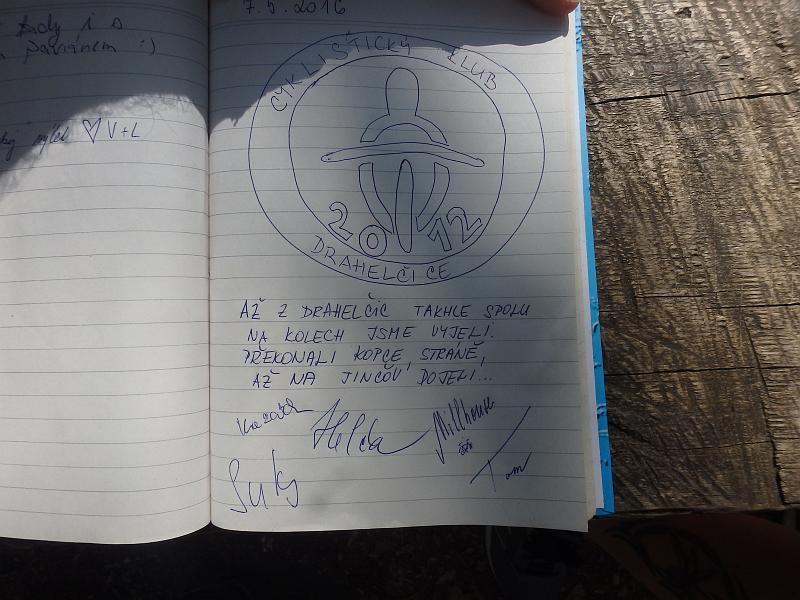 pavánem :)
♡ V+L
7.5.2016
CYKLISTICKÝ KLUB
2012
DRAHELČICE
AŽ Z DRAHELČIC TAKHLE SPOLU
NA KOLECH JSME VYJELI.
PŘEKONALI KOPCE, STRÁNĚ,
AŽ NA JINCOV DOJELI...
Helča
Millhouse
Suky
Tom